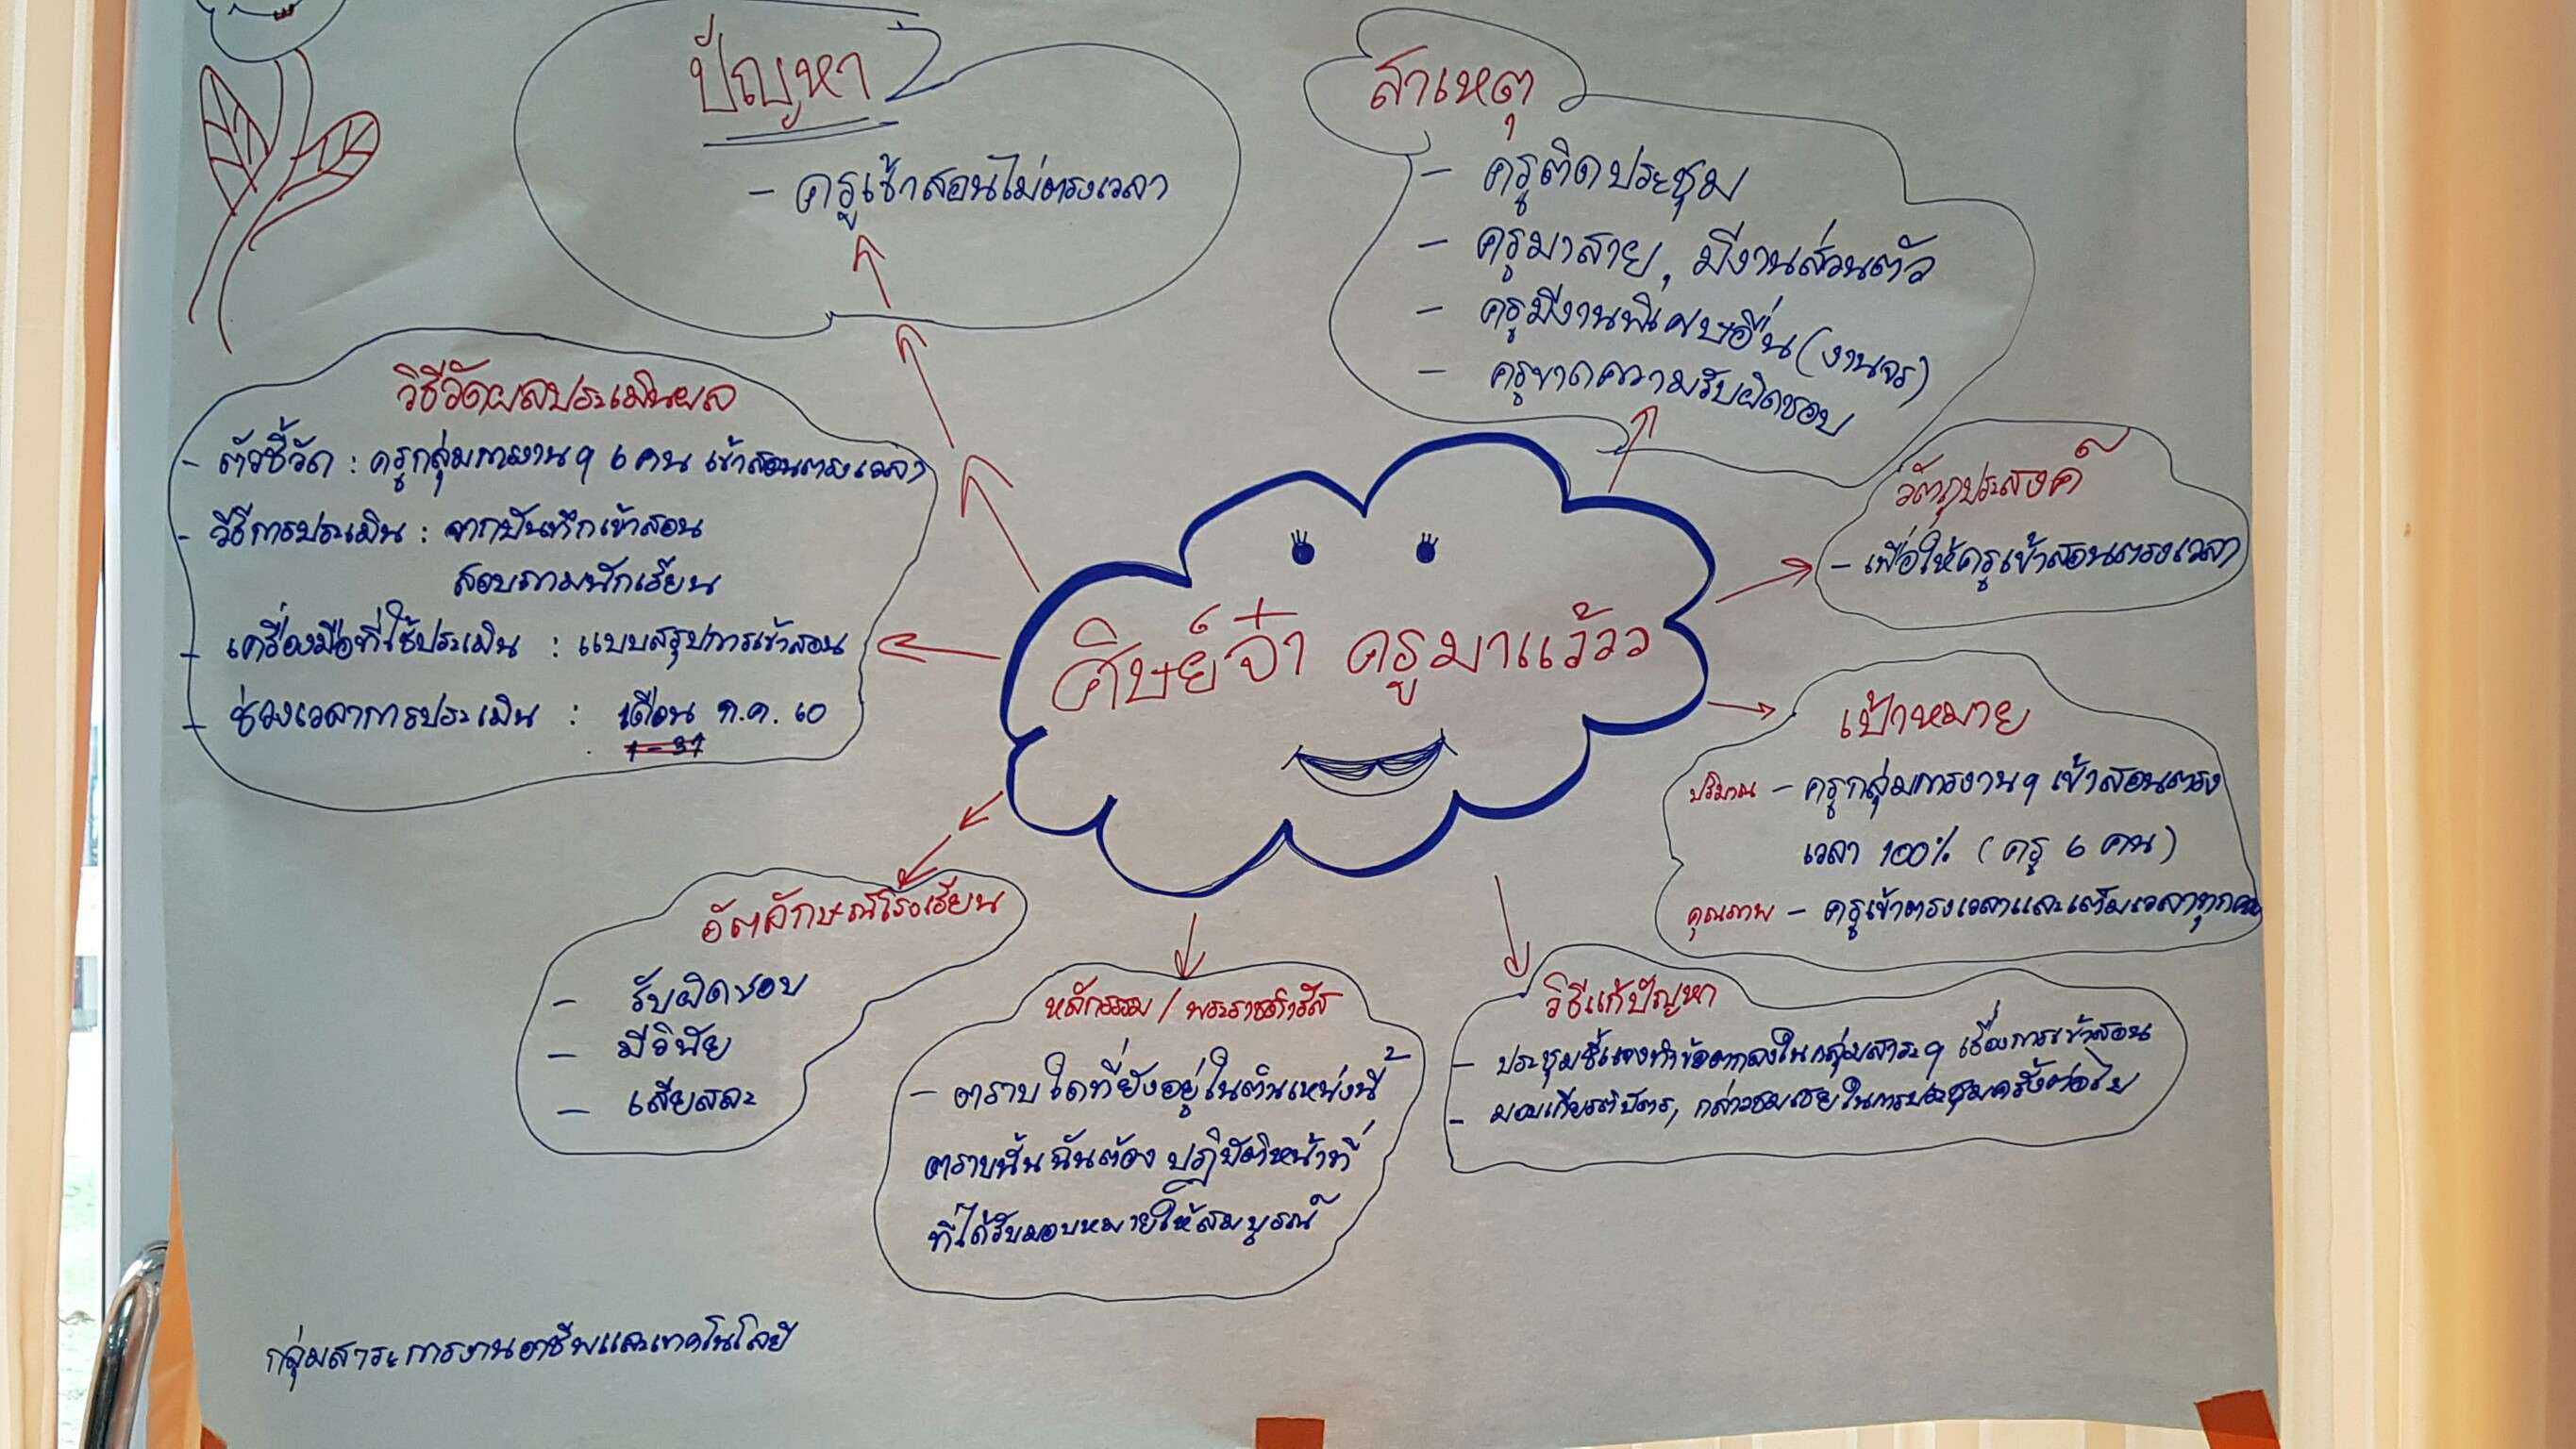 ปัญหา
- ครูเข้าสอนไม่ตรงเวลา
สาเหตุ
- ครูติดประชุม
- ครูมาสาย, มีงานส่วนตัว
- ครูมีงานพิเศษอื่น (งานจร)
- ครูขาดความรับผิดชอบ
วิธีวัดผลประเมินผล
- ตัวชี้วัด : ครูกลุ่มการงานฯ 6 คน เข้าสอนตรงเวลา
- วิธีการประเมิน : จากบันทึกเข้าสอน
สอบถามนักเรียน
- เครื่องมือที่ใช้ประเมิน : แบบสรุปการเข้าสอน
- ช่วงเวลาการประเมิน : เดือน ก.ค. 60
1-31
วัตถุประสงค์
- เพื่อให้ครูเข้าสอนตรงเวลา
ศิษย์จ๋า ครูมาแว้วว
เป้าหมาย
ปริมาณ - ครูกลุ่มการงานฯ เข้าสอนตรง
เวลา 100% (ครู 6 คน)
คุณภาพ - ครูเข้าตรงเวลาและเต็มเวลาทุกคน
อัตลักษณ์โรงเรียน
- รับผิดชอบ
- มีวินัย
- เสียสละ
หลักธรรม / พระราชดำรัส
- ตราบใดที่ยังอยู่ในตำแหน่งนี้
ตราบนั้นฉันต้อง ปฏิบัติหน้าที่
ที่ได้รับมอบหมายให้สมบูรณ์
วิธีแก้ปัญหา
- ประชุมชี้แจงทำข้อตกลงในกลุ่มสาระฯ เรื่องการเข้าสอน
- มอบเกียรติบัตร, กล่าวชมเชยในการประชุมครั้งต่อไป
กลุ่มสาระการงานอาชีพและเทคโนโลยี